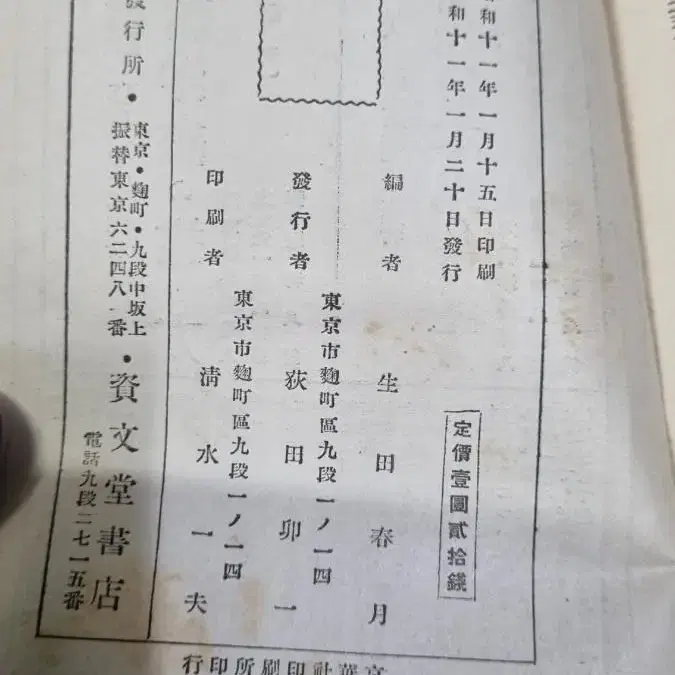 和十一年一月十五日印刷
和十一年一月二十日發行
定價壹圓貳拾錢
編者 生田春月
東京市麴町區九段一ノ一四
發行者 荻田卯一
東京市麴町區九段一ノ一四
印刷者 清水一夫
發行所・
東京・麴町・九段中坂上
振替東京六二四八一番
・資文堂書店
電話九段二七一五番
行印所刷印社華京